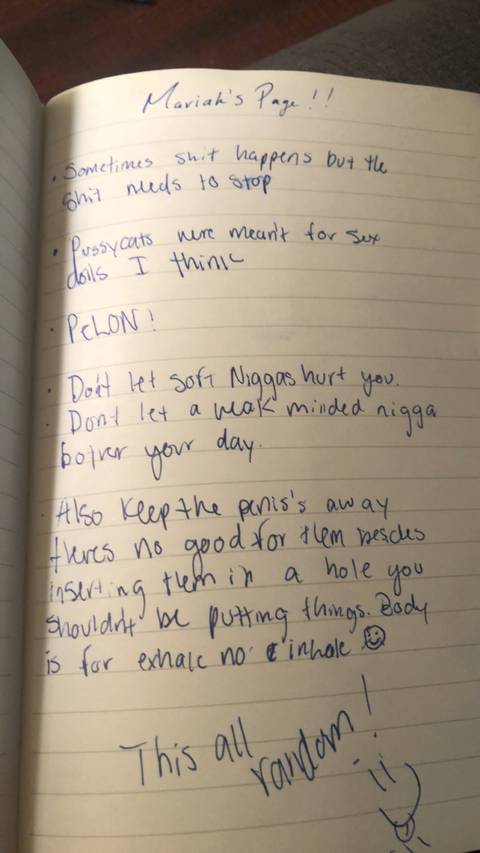 Mariah's Page!!
· Sometimes shit happens but the
shit needs to stop
· Pussycats were meant for sex
dolls I think
· PeLON!
· Don't let soft Niggas hurt you.
· Dont let a weak minded nigga
bother your day.
· Also keep the penis's away
theres no good for them besides
inserting them in a hole you
shouldn't be putting things. Body
is for exhale no inhale ☺
This all
random!